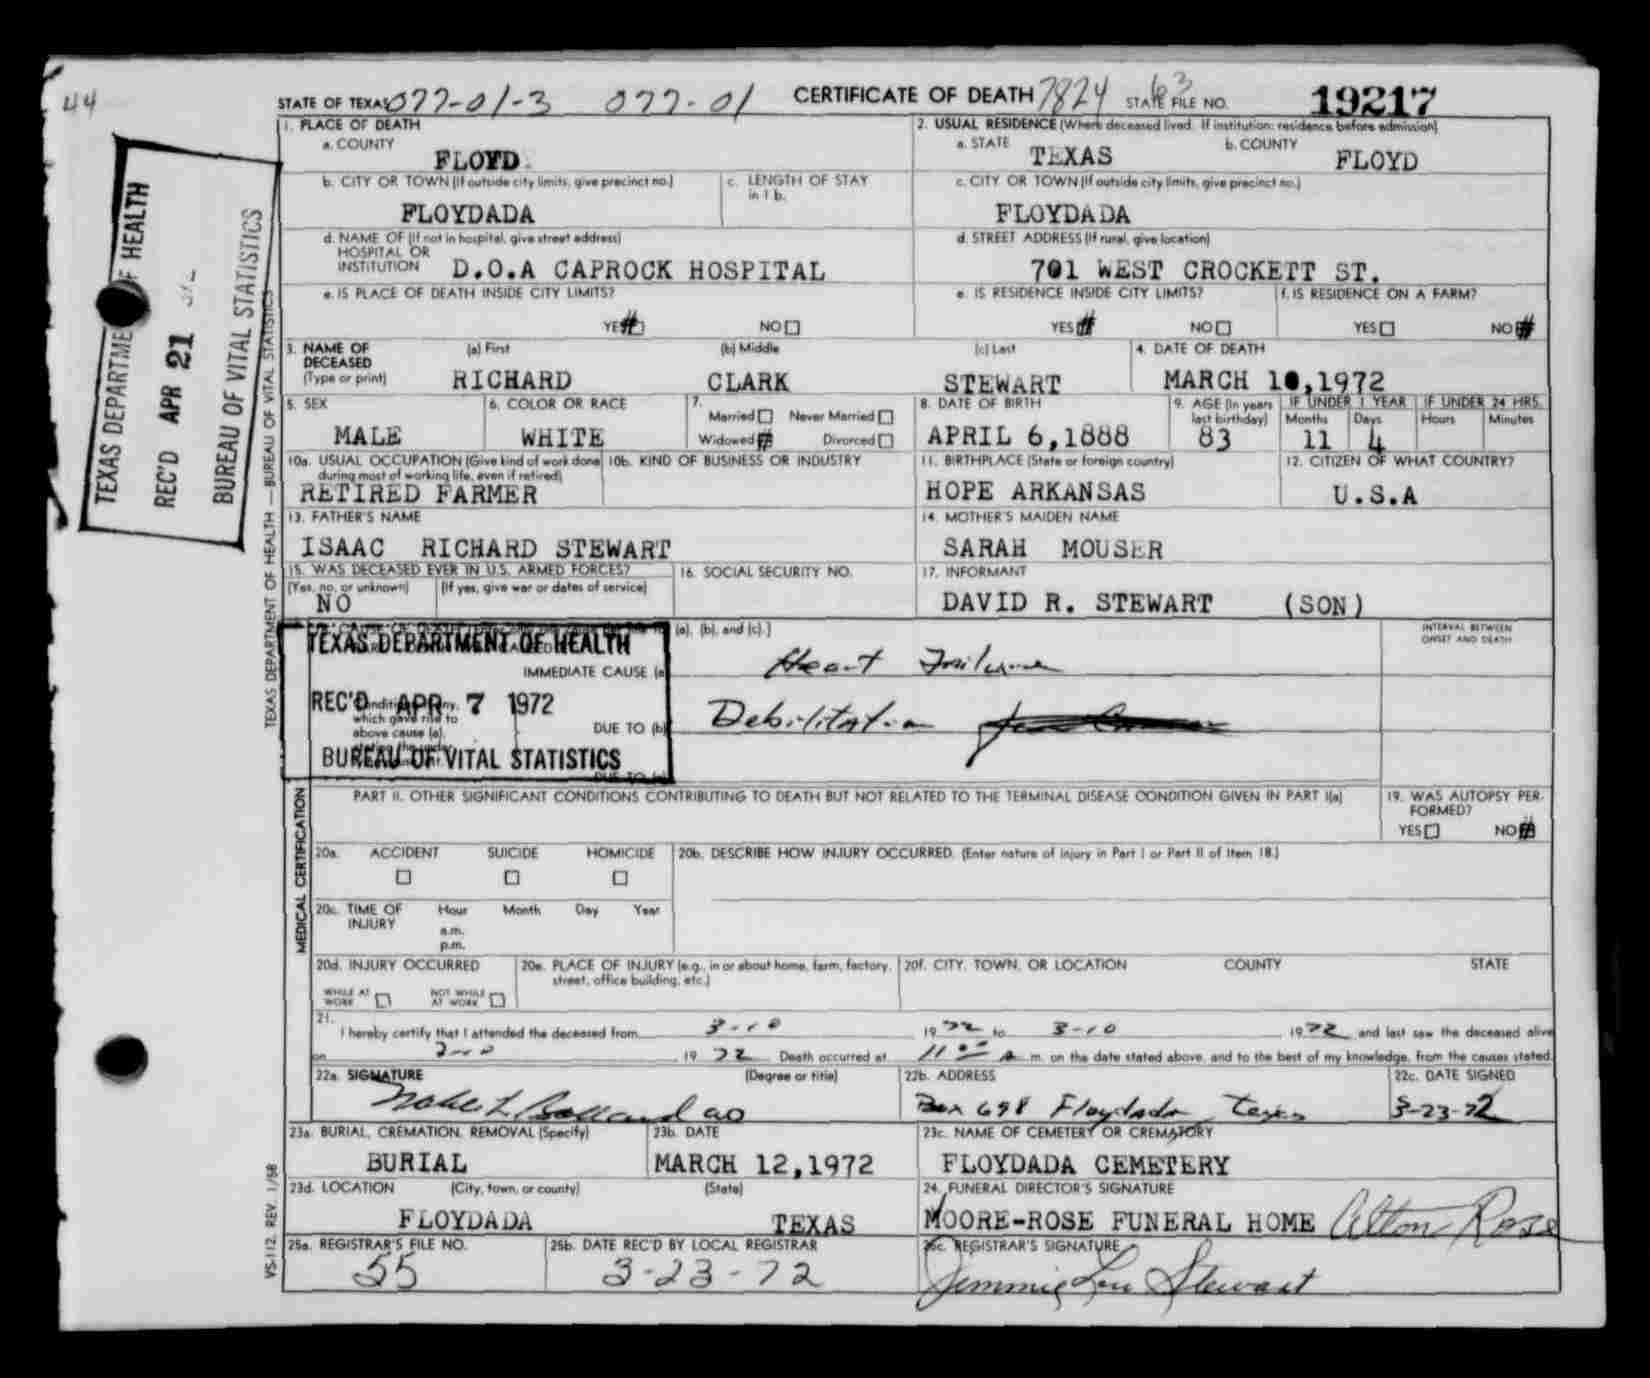 44
STATE OF TEXAS 077-01-3 077-01 CERTIFICATE OF DEATH 7824 63 STATE FILE NO. 19217
1. PLACE OF DEATH
a. COUNTY
FLOYD
2. USUAL RESIDENCE (Where deceased lived. If institution: residence before admission)
a. STATE b. COUNTY
TEXAS FLOYD
b. CITY OR TOWN (If outside city limits, give precinct no.) c. LENGTH OF STAY
in 1 b.
FLOYDADA
c. CITY OR TOWN (If outside city limits, give precinct no.)
FLOYDADA
d. NAME OF (If not in hospital, give street address)
HOSPITAL OR
INSTITUTION D.O.A CAPROCK HOSPITAL
d. STREET ADDRESS (If rural, give location)
701 WEST CROCKETT ST.
e. IS PLACE OF DEATH INSIDE CITY LIMITS?
YES NO
e. IS RESIDENCE INSIDE CITY LIMITS? f. IS RESIDENCE ON A FARM?
YES NO YES NO
3. NAME OF (a) First (b) Middle (c) Last 4. DATE OF DEATH
DECEASED
(Type or print) RICHARD CLARK STEWART MARCH 10,1972
5. SEX 6. COLOR OR RACE 7.
Married Never Married
MALE WHITE Widowed Divorced
8. DATE OF BIRTH 9. AGE (In years IF UNDER 1 YEAR IF UNDER 24 HRS.
last birthday) Months Days Hours Minutes
APRIL 6,1888 83 11 4
10a. USUAL OCCUPATION (Give kind of work done 10b. KIND OF BUSINESS OR INDUSTRY
during most of working life, even if retired)
RETIRED FARMER
11. BIRTHPLACE (State or foreign country) 12. CITIZEN OF WHAT COUNTRY?
HOPE ARKANSAS U.S.A
13. FATHER'S NAME 14. MOTHER'S MAIDEN NAME
ISAAC RICHARD STEWART SARAH MOUSER
15. WAS DECEASED EVER IN U.S. ARMED FORCES? 16. SOCIAL SECURITY NO. 17. INFORMANT
(Yes, no, or unknown) (If yes, give war or dates of service)
NO DAVID R. STEWART (SON)
(a), (b), and (c).] INTERVAL BETWEEN
ONSET AND DEATH
TEXAS DEPARTMENT OF HEALTH
IMMEDIATE CAUSE (a Heart Failure
REC'D APR 7 1972
which gave rise to
above cause (a)
DUE TO (b) Debilitation
BUREAU OF VITAL STATISTICS
DUE TO
MEDICAL CERTIFICATION
PART II. OTHER SIGNIFICANT CONDITIONS CONTRIBUTING TO DEATH BUT NOT RELATED TO THE TERMINAL DISEASE CONDITION GIVEN IN PART I(a)
19. WAS AUTOPSY PER-
FORMED?
YES NO
20a. ACCIDENT SUICIDE HOMICIDE 20b. DESCRIBE HOW INJURY OCCURRED. (Enter nature of injury in Part I or Part II of Item 18.)
20c. TIME OF Hour Month Day Year
INJURY
a.m.
p.m.
20d. INJURY OCCURRED 20e. PLACE OF INJURY (e.g., in or about home, farm, factory, 20f. CITY, TOWN, OR LOCATION COUNTY STATE
street, office building, etc.)
WHILE AT NOT WHILE
WORK AT WORK
21.
I hereby certify that I attended the deceased from 3-10 1972 to 3-10 1972 and last saw the deceased alive
on 19 72 Death occurred at 11 00 a m. on the date stated above, and to the best of my knowledge, from the causes stated.
22a. SIGNATURE (Degree or title) 22b. ADDRESS 22c. DATE SIGNED
Box 698 Floydada Texas 3-23-72
23a. BURIAL, CREMATION, REMOVAL (Specify) 23b. DATE 23c. NAME OF CEMETERY OR CREMATORY
BURIAL MARCH 12,1972 FLOYDADA CEMETERY
23d. LOCATION (City, town, or county) (State) 24. FUNERAL DIRECTOR'S SIGNATURE
FLOYDADA TEXAS MOORE-ROSE FUNERAL HOME Alton Rose
25a. REGISTRAR'S FILE NO. 25b. DATE REC'D BY LOCAL REGISTRAR 25c. REGISTRAR'S SIGNATURE
55 3-23-72 Jimmie Lou Stewart
TEXAS DEPARTMENT OF HEALTH
REC'D APR 21
BUREAU OF VITAL STATISTICS
TEXAS DEPARTMENT OF HEALTH — BUREAU OF VITAL STATISTICS
VS-112. REV. 1/58